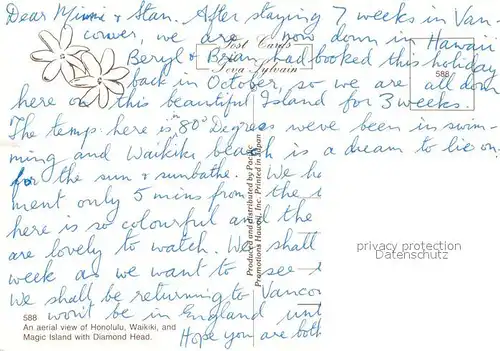 Dear Minnie & Stan. After staying 7 weeks in Van-
couver, we are now down in Hawaii
Post Cards
Beryl & Brian had booked this holiday
Teva Sylvain
588
back in October, so we are all down
here on this beautiful Island for 3 weeks.
The temp: here is in 80° Degrees weve been in swim-
ming and Waikiki beach is a dream to lie on.
for the sun & sunbathe. We
ment only 5 mins from the
here is so colourful and the
are lovely to watch. We shall
week as we want to see
we shall be returning to Vancou
won't be in England unt
Hope you are both
Produced and distributed by Pacific
Promotions Hawaii, Inc. Printed in Japan
privacy protection
Datenschutz
588
An aerial view of Honolulu, Waikiki, and
Magic Island with Diamond Head.